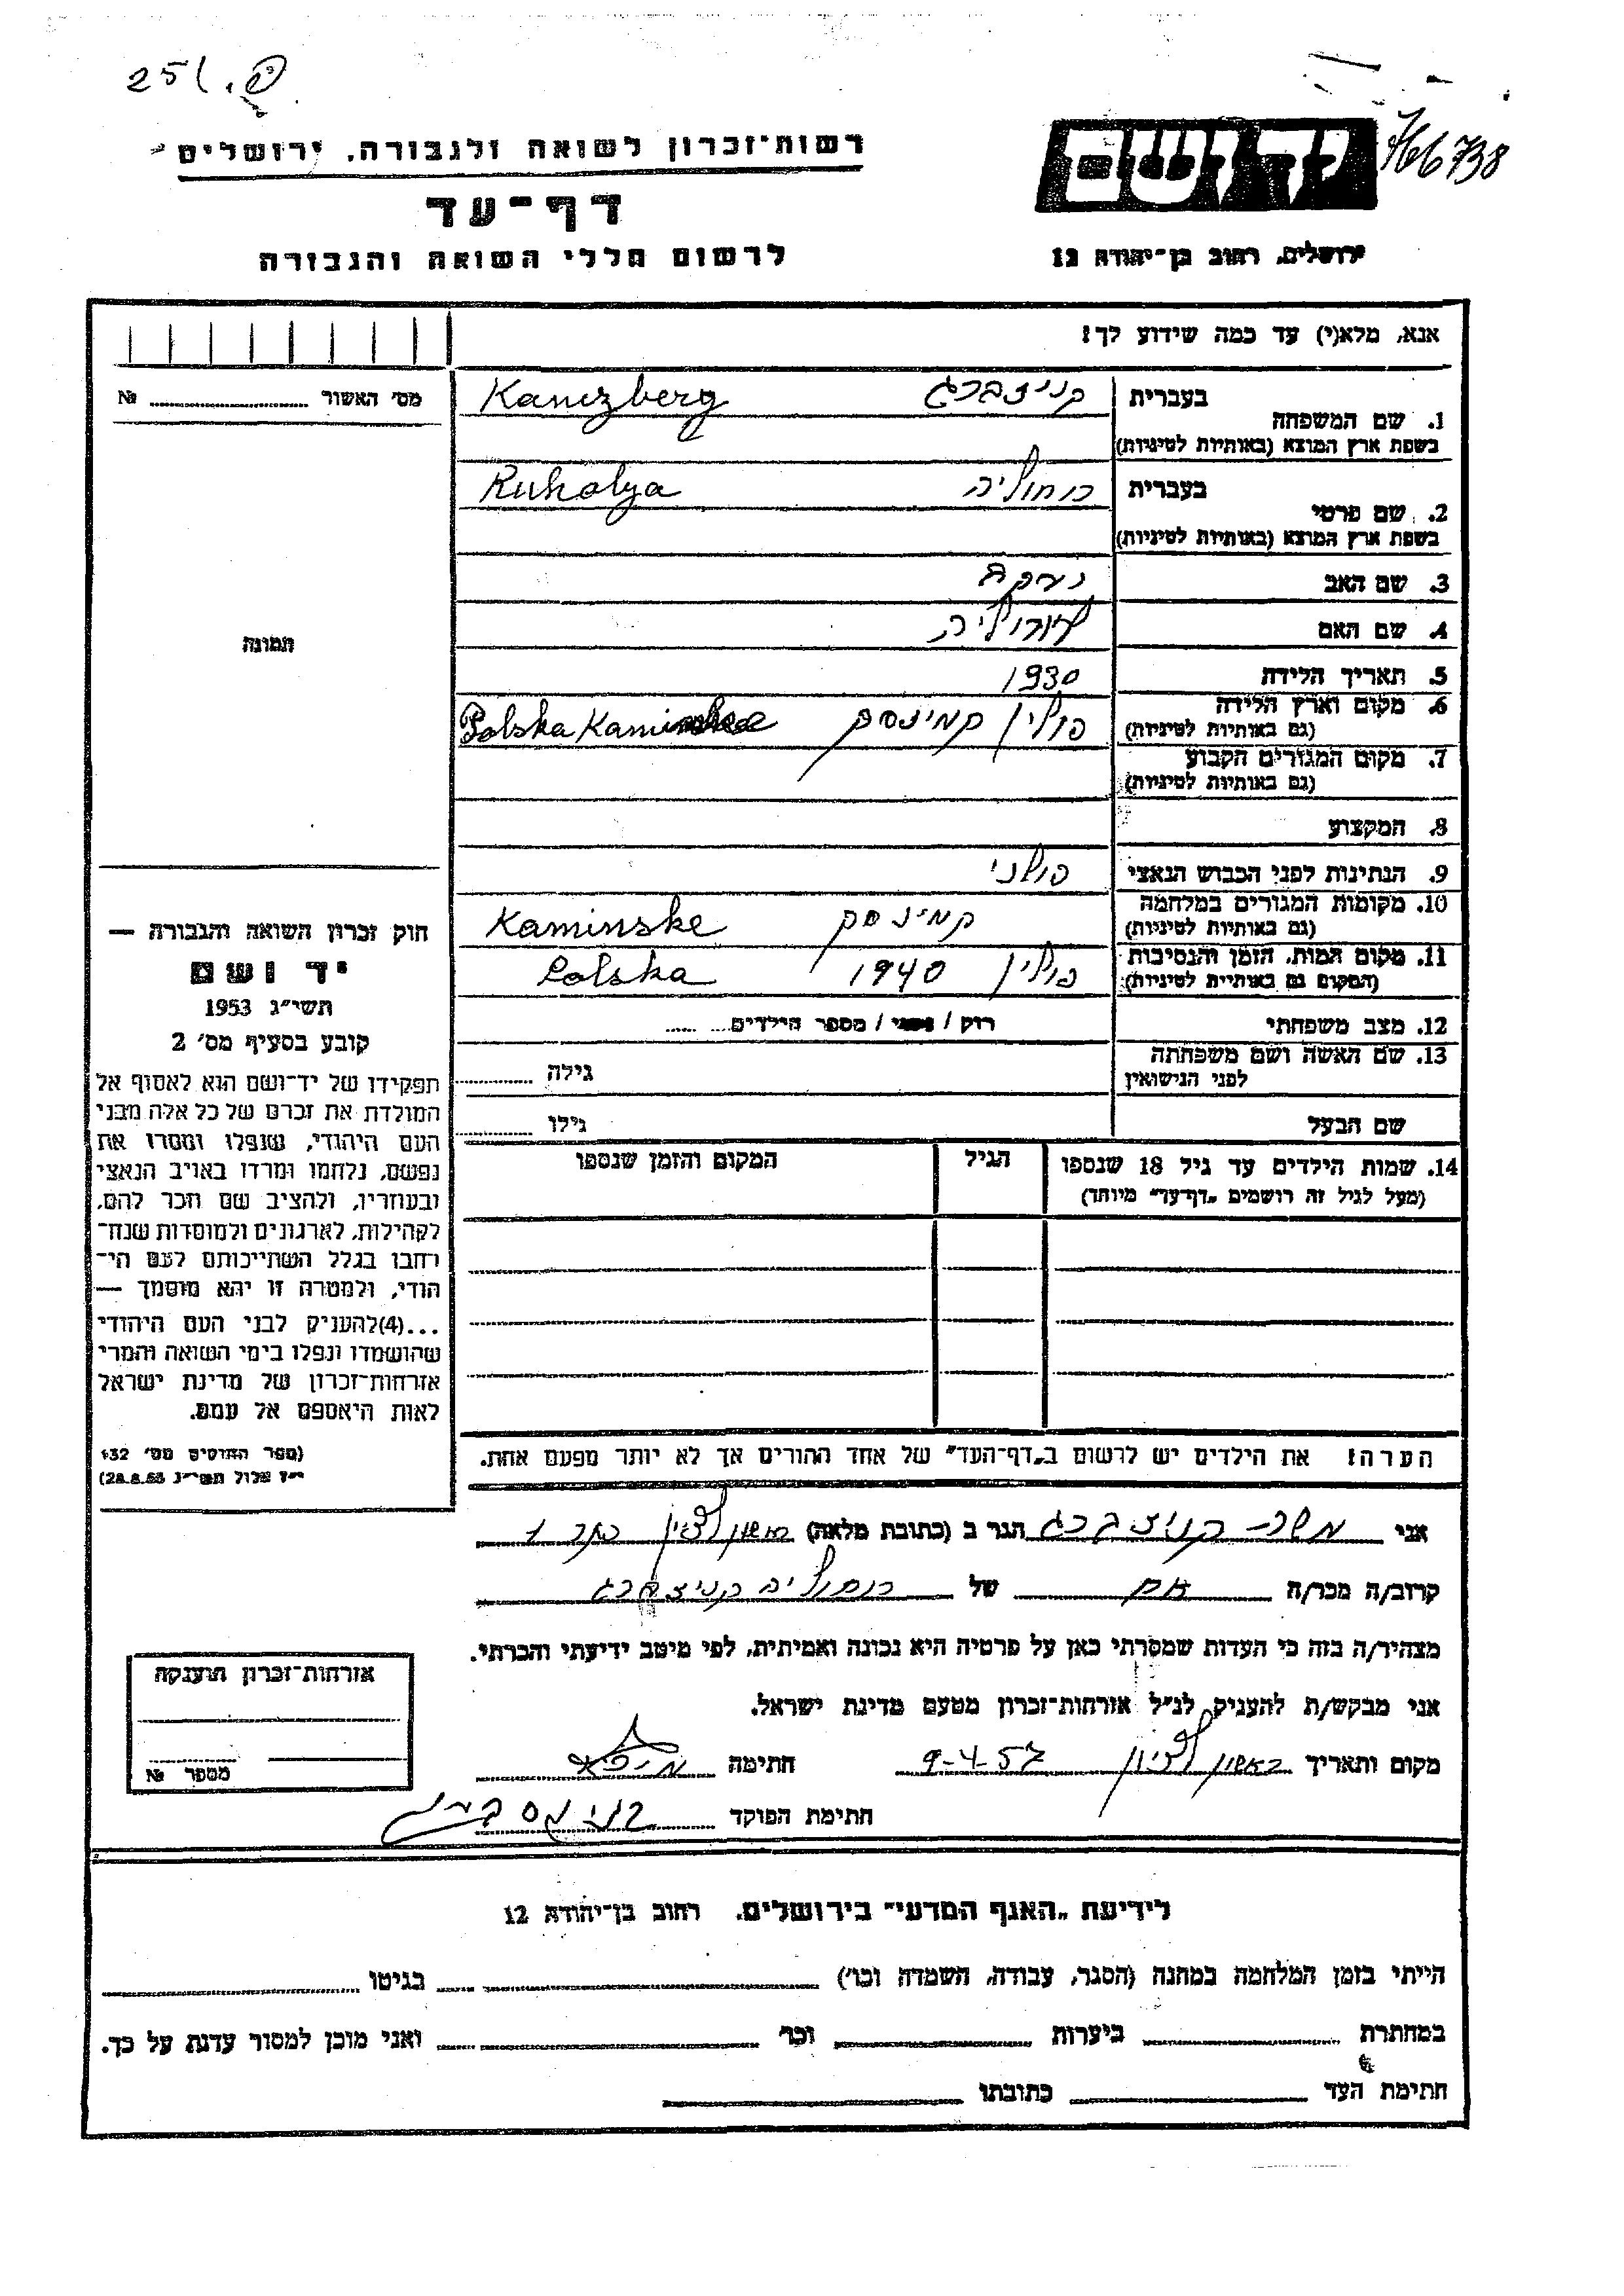 251.
766738
יד ושם
רשות־זכרון לשואה ולגבורה, ירושלים
דף־עד
לרשום חללי השואה והגבורה
ירושלים, רחוב בן־יהודה 12
אנא, מלא(י) עד כמה שידוע לך!
מס' האשור № 
1. שם המשפחה בעברית קניצברג Kanczberg
בשפת ארץ המוצא (באותיות לטיניות)
2. שם פרטי בעברית רוחוליה Ruholya
בשפת ארץ המוצא (באותיות לטיניות)
3. שם האב
4. שם האם
5. תאריך הלידה 1930
6. מקום וארץ הלידה פולין קמינסק Polska Kaminske
(גם באותיות לטיניות)
7. מקום המגורים הקבוע
(גם באותיות לטיניות)
8. המקצוע
9. הנתינות לפני הכבוש הנאצי פולני
10. מקומות המגורים במלחמה קמינסק Kaminske
(גם באותיות לטיניות)
11. מקום המות, הזמן והנסיבות פולין 1940 Polska
(המקום גם באותיות לטיניות)
12. מצב משפחתי רווק / נשוי / מספר הילדים
13. שם האשה ושם משפחתה גילה
לפני הנישואין
שם הבעל גילו
14. שמות הילדים עד גיל 18 שנספו הגיל המקום והזמן שנספו
(מעל לגיל זה רושמים „דף־עד" מיוחד)
הערה! את הילדים יש לרשום ב„דף־העד" של אחד ההורים אך לא יותר מפעם אחת.
תמונה
חוק זכרון השואה והגבורה —
יד ושם
תשי"ג 1953
קובע בסעיף מס' 2
תפקידו של יד־ושם הוא לאסוף אל
המולדת את זכרם של כל אלה מבני
העם היהודי, שנפלו ומסרו את
נפשם, נלחמו ומרדו באויב הנאצי
ובעוזריו, ולהציב שם וזכר להם,
לקהילות, לארגונים ולמוסדות שנח־
רחבו בגלל השתייכותם לעם הי־
הודי, ולמטרה זו יהא מוסמך —
...(4)להעניק לבני העם היהודי
שהושמדו ונפלו בימי השואה והמרי
אזרחות־זכרון של מדינת ישראל
לאות היאספם אל עמם.
(ספר החוקים מס' 132
י"ז אלול תשי"ג 28.8.53)
אני קניצברג הגר ב (כתובת מלאה) ראשון לציון
קרוב/ה מכר/ה אם של רוחוליה קניצברג
מצהיר/ה בזה כי העדות שמסרתי כאן על פרטיה היא נכונה ואמיתית, לפי מיטב ידיעתי והכרתי.
אני מבקש/ת להעניק לנ"ל אזרחות־זכרון מטעם מדינת ישראל.
מקום ותאריך ראשון לציון 9-4-57 חתימה
חתימת הפוקד
אזרחות־זכרון תוענקה
מספר №
לידיעת „האגף המדעי" בירושלים, רחוב בן־יהודה 12
הייתי בזמן המלחמה במחנה (הסגר, עבודה, השמדה וכו') בגיטו
במחתרת ביערות וכו' ואני מוכן למסור עדות על כך.
חתימת העד כתובתו